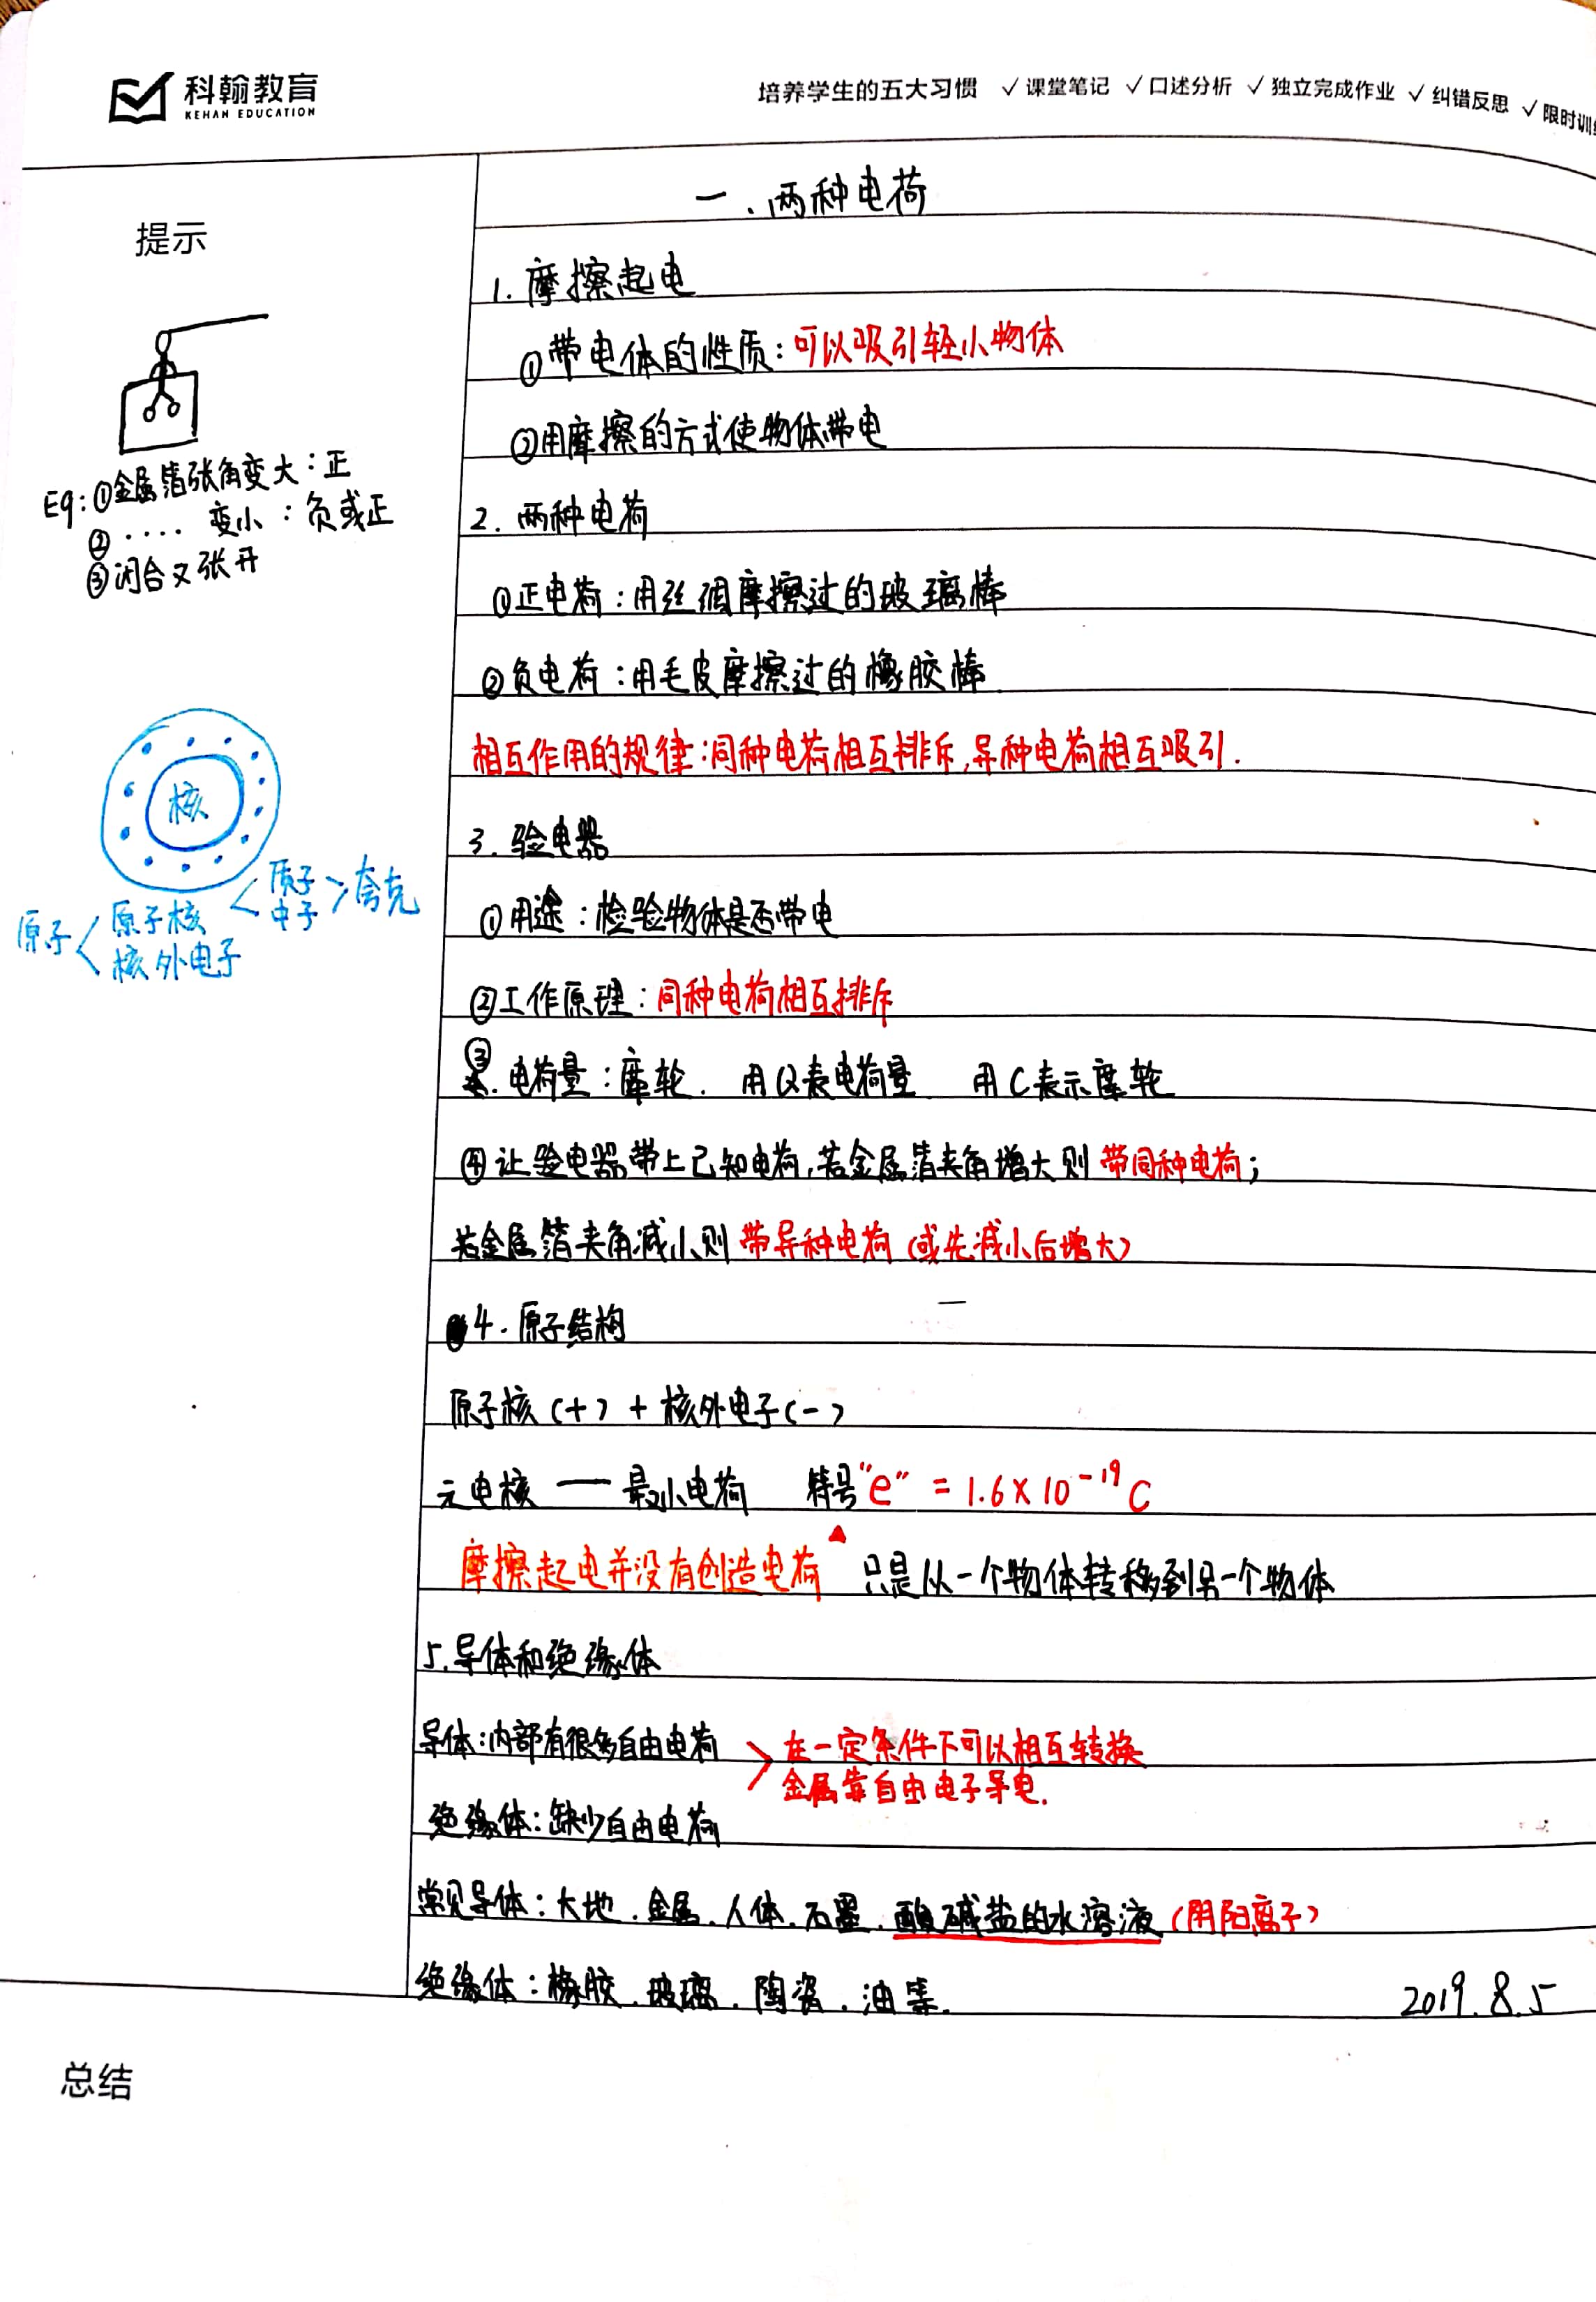 科翰教育
KEHAN EDUCATION
培养学生的五大习惯 ✓课堂笔记 ✓口述分析 ✓独立完成作业 ✓纠错反思 ✓限时训
提示
Eg:①金属箔张角变大:正
②.... 变小:负或正
③闭合又张开
核
原子<原子核<质子>夸克
中子
核外电子
一.两种电荷
1.摩擦起电
①带电体的性质:可以吸引轻小物体
②用摩擦的方式使物体带电
2.两种电荷
①正电荷:用丝绸摩擦过的玻璃棒
②负电荷:用毛皮摩擦过的橡胶棒
相互作用的规律:同种电荷相互排斥,异种电荷相互吸引.
3.验电器
①用途:检验物体是否带电
②工作原理:同种电荷相互排斥
③.电荷量:库轮. 用Q表电荷量 用C表示库轮
④让验电器带上已知电荷,若金属箔夹角增大则带同种电荷;
若金属箔夹角减小则带异种电荷(或先减小后增大)
4.原子结构
原子核(+)+核外电子(-)
元电核——最小电荷 符号"e"=1.6×10⁻¹⁹C
摩擦起电并没有创造电荷 只是从一个物体转移到另一个物体
5.导体和绝缘体
导体:内部有很多自由电荷>在一定条件下可以相互转换
金属靠自由电子导电.
绝缘体:缺少自由电荷
常见导体:大地.金属.人体.石墨.酸碱盐的水溶液(阴阳离子)
绝缘体:橡胶.玻璃.陶瓷.油等.
2019.8.5
总结